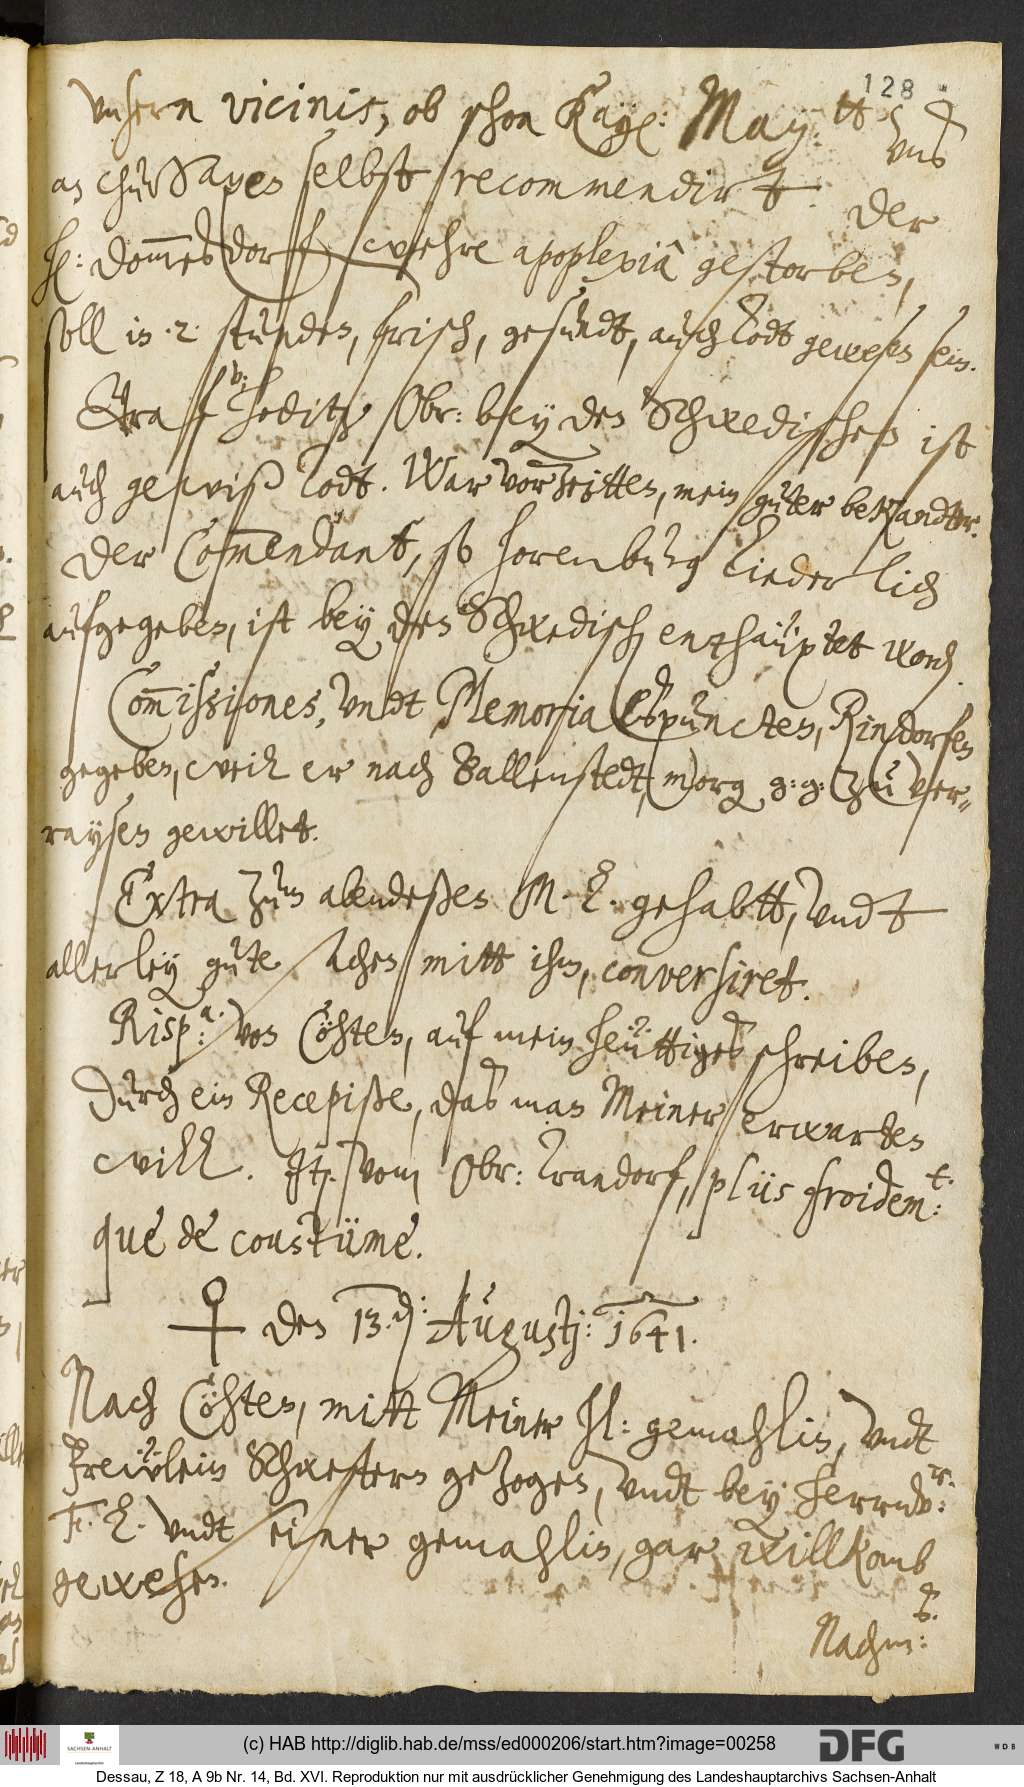 128
vnsern vicinis, ob schon Kayß: May:tt vns
an ChurSaxen selbst recommendirt. Der
H: Dommesdorf wehre apoplexiâ gestorben,
soll in .2. stunden, frisch, gesundt, auch Todt gewesen sein.
Graf v: Hoditz Obr: bey den Schwedischen ist
auch gewiß Todt. War vorzeitten, mein guter bekandter.
Der Commendant, so Horenburg liederlich
aufgegeben, ist bey den Schwedisch enthauptet word.
Commissiones, vndt Memoria(l)spuncten, Rindorfen
gegeben, weil er nach Ballenstedt, morg g: g: zu ver-
raysen gewillet.
Extra zum abendeßen M. L. gehabtt, vndt
allerley gute sachen mitt ihm, conversiret.
Risp.a: von Cöhten, auf mein heüttiges schreiben,
durch ein Recepiße, das man Meiner erwarten
will. It: vom Obr: Trandorf, plüs froidem:t
que de coustüme.
♀ den 13. d: Augustj: 1641.
Nach Cöhten, mitt Meiner Hl: gemahlin, vndt
Frewlein Schwestern gezogen, vndt bey herrnv:r
F. L. vndt seiner gemahlin, gar willkomb
gewesen.
Nachm:s.
(c) HAB http://diglib.hab.de/mss/ed000206/start.htm?image=00258
SACHSEN-ANHALT
Landeshauptarchiv
DFG
WDB
Dessau, Z 18, A 9b Nr. 14, Bd. XVI. Reproduktion nur mit ausdrücklicher Genehmigung des Landeshauptarchivs Sachsen-Anhalt